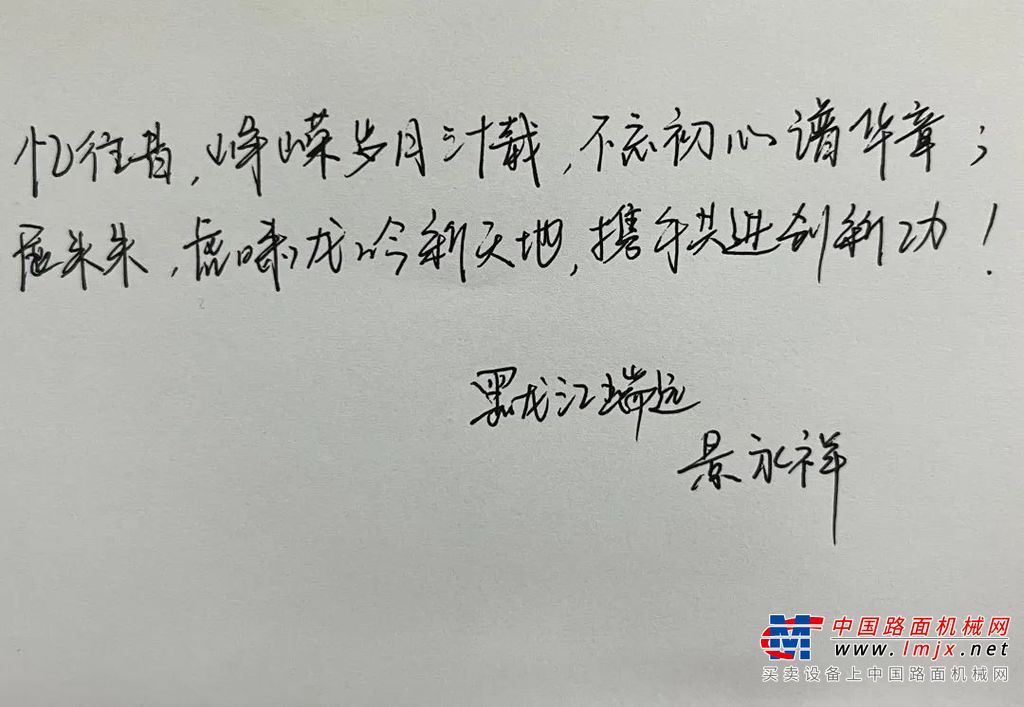 忆往昔，峥嵘岁月三十载，不忘初心谱华章；
展未来，虎啸龙吟新天地，携手共进创新功！
黑龙江瑞远
景永祥
中国路面机械网
www.lmjx.net
买卖设备上中国路面机械网